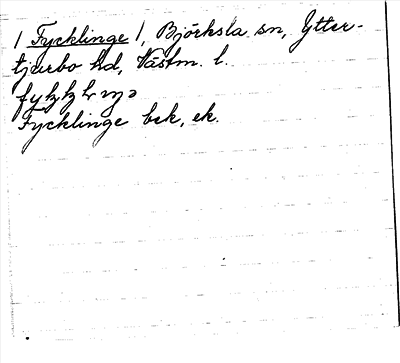 / Fycklinge /, Björksta sn, Ytter-
tjurbo hd, Västm. l.
Fycklinge bek, ek.